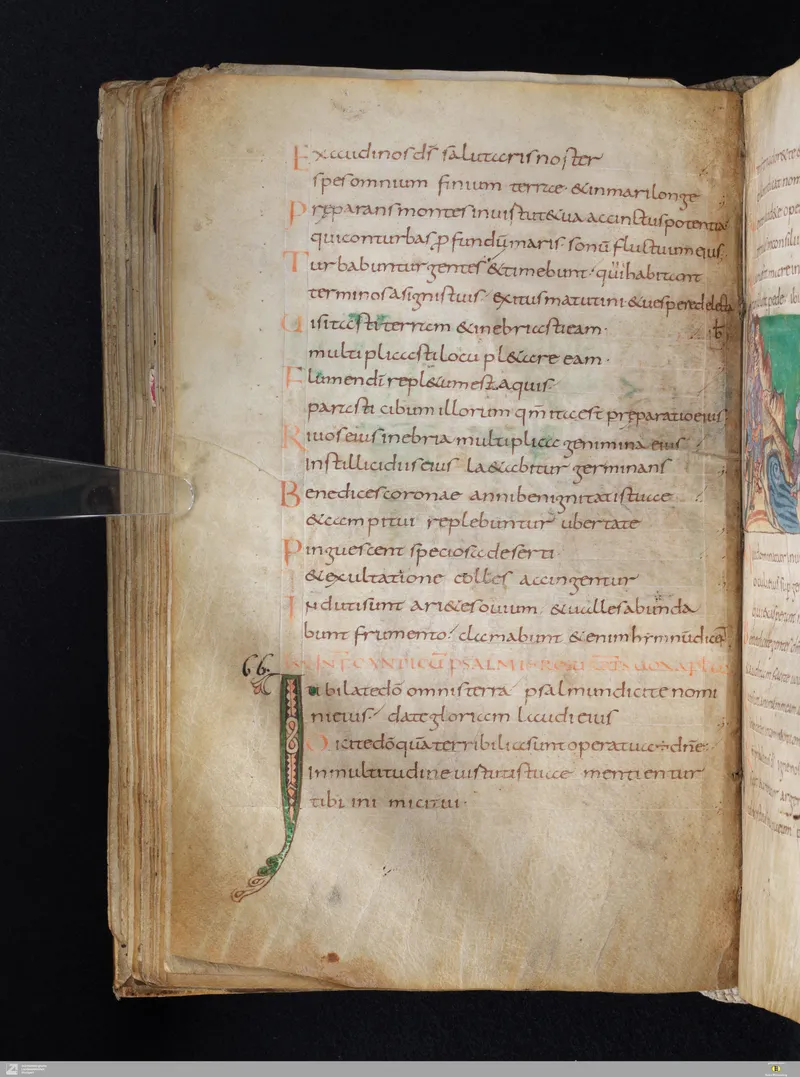 Exaudi nos ds̄ salutaris noster
spes omnium finium terrae &in mari longe
Preparans montes in uirtute tua accinctus potentia
qui conturbas p̄fundū maris sonū fluctuum eius
Turbabuntur gentes &timebunt qui habitant
terminos a signis tuis exitus matutini &uespere delecta
b̄
Uisitasti terram &inebriasti eam·
multiplicasti locupl&are eam·
Flumen dī repl&um est aquis
parasti cibum illorum qm̄ ita est preparatio eius
Riuos eius inebria multiplica genimina eius
in stillicidiis eius la&abitur germinans
Benedices coronae anni benignitatis tuae
&campi tui replebuntur ubertate
Pinguescent speciosa deserti·
&exultatione colles accingentur
Induti sunt ari&es ouium &ualles abunda
bunt frumento clamabunt &enim hymnū dicent
66.
Iubilate dō omnis terra psalmum dicite nomi
ni eius date gloriam laudi eius
Dicite dō quā terribilia sunt opera tua dn̄e
in multitudine uirtutis tuae mentientur
tibi inimici tui·